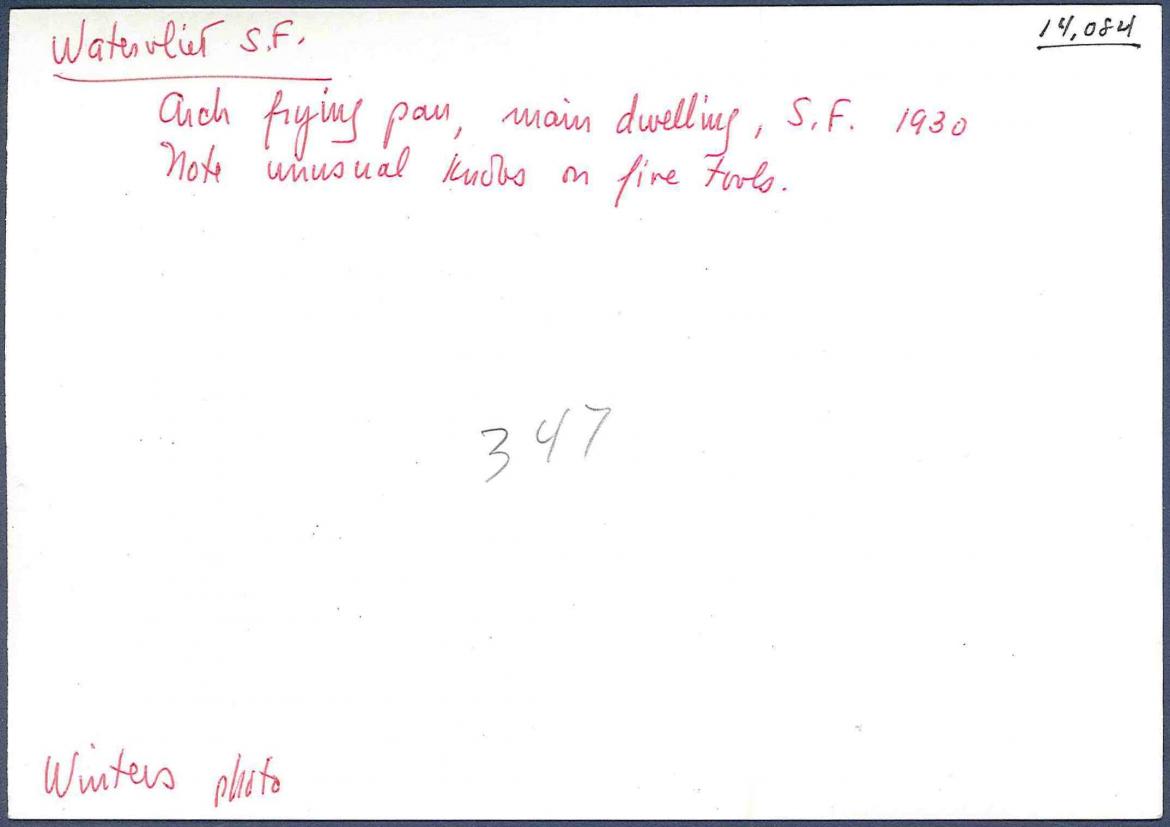 Watervliet S.F.
14,084
Arch frying pan, main dwelling, S.F. 1930
Note unusual knobs on fire tools.
347
Winters photo